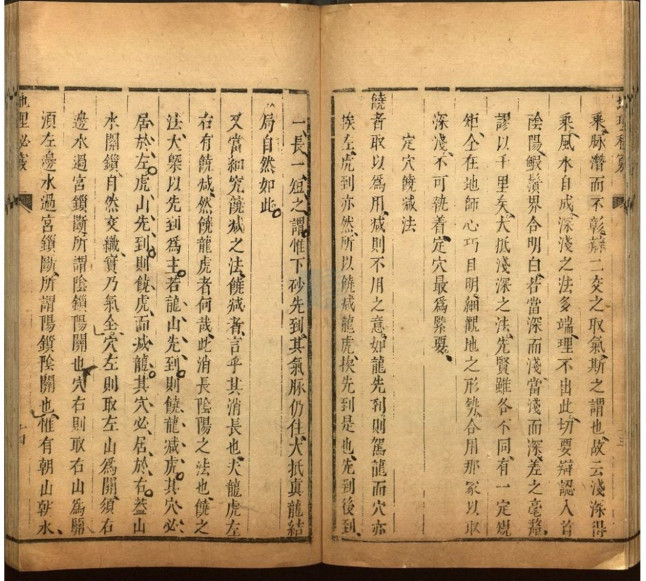 乘脉潛而不彰辯二交之取氣斯之謂也故云淺深得
乘風水自成深淺之法多端理不出此切要辯認入首
陰陽蝦鬚界合明白若當深而淺當淺而深差之毫釐
謬以千里矣大抵淺深之法先賢雖各不同有一定規
矩全在地師心巧目明細觀地之形勢合用那家以取
深淺不可執着定穴最爲緊要
定穴饒减法
饒者取以爲用减則不用之意如龍先到則篤龍而穴亦
挨左虎到亦然所以饒减龍虎挨先到是也先到後到
一長一短之謂惟下砂先到其氣脉仍住大抵真龍結
局自然如此
又當細究饒减之法饒减者言乎其消長也夫龍虎左
右有饒减然饒龍虎者何哉此消長陰陽之法也饒之
法大槩以先到爲主若龍山先到則饒龍减虎其穴必
居於左虎山先到則饒虎而减龍其穴必居於右葢山
水關鎖自然交織實乃氣全穴左則取左山爲關須右
邊水過宮鎖斷所謂陰鎖陽關也穴右則取右山爲關
須左邊水過宮鎖斷所謂陽鎖陰關也惟有朝山朝水
地理必藏